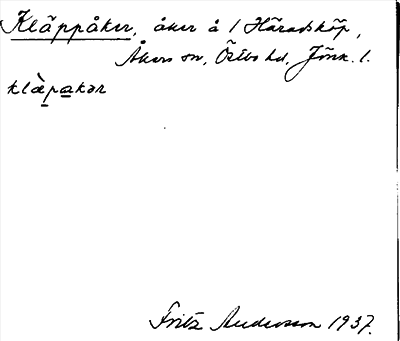 Kläppåker, åker å 1 Häradsköp,
Åkers sn, Östbo hd, Jönk. l.
klàpakər
Fritz Andersson 1937.